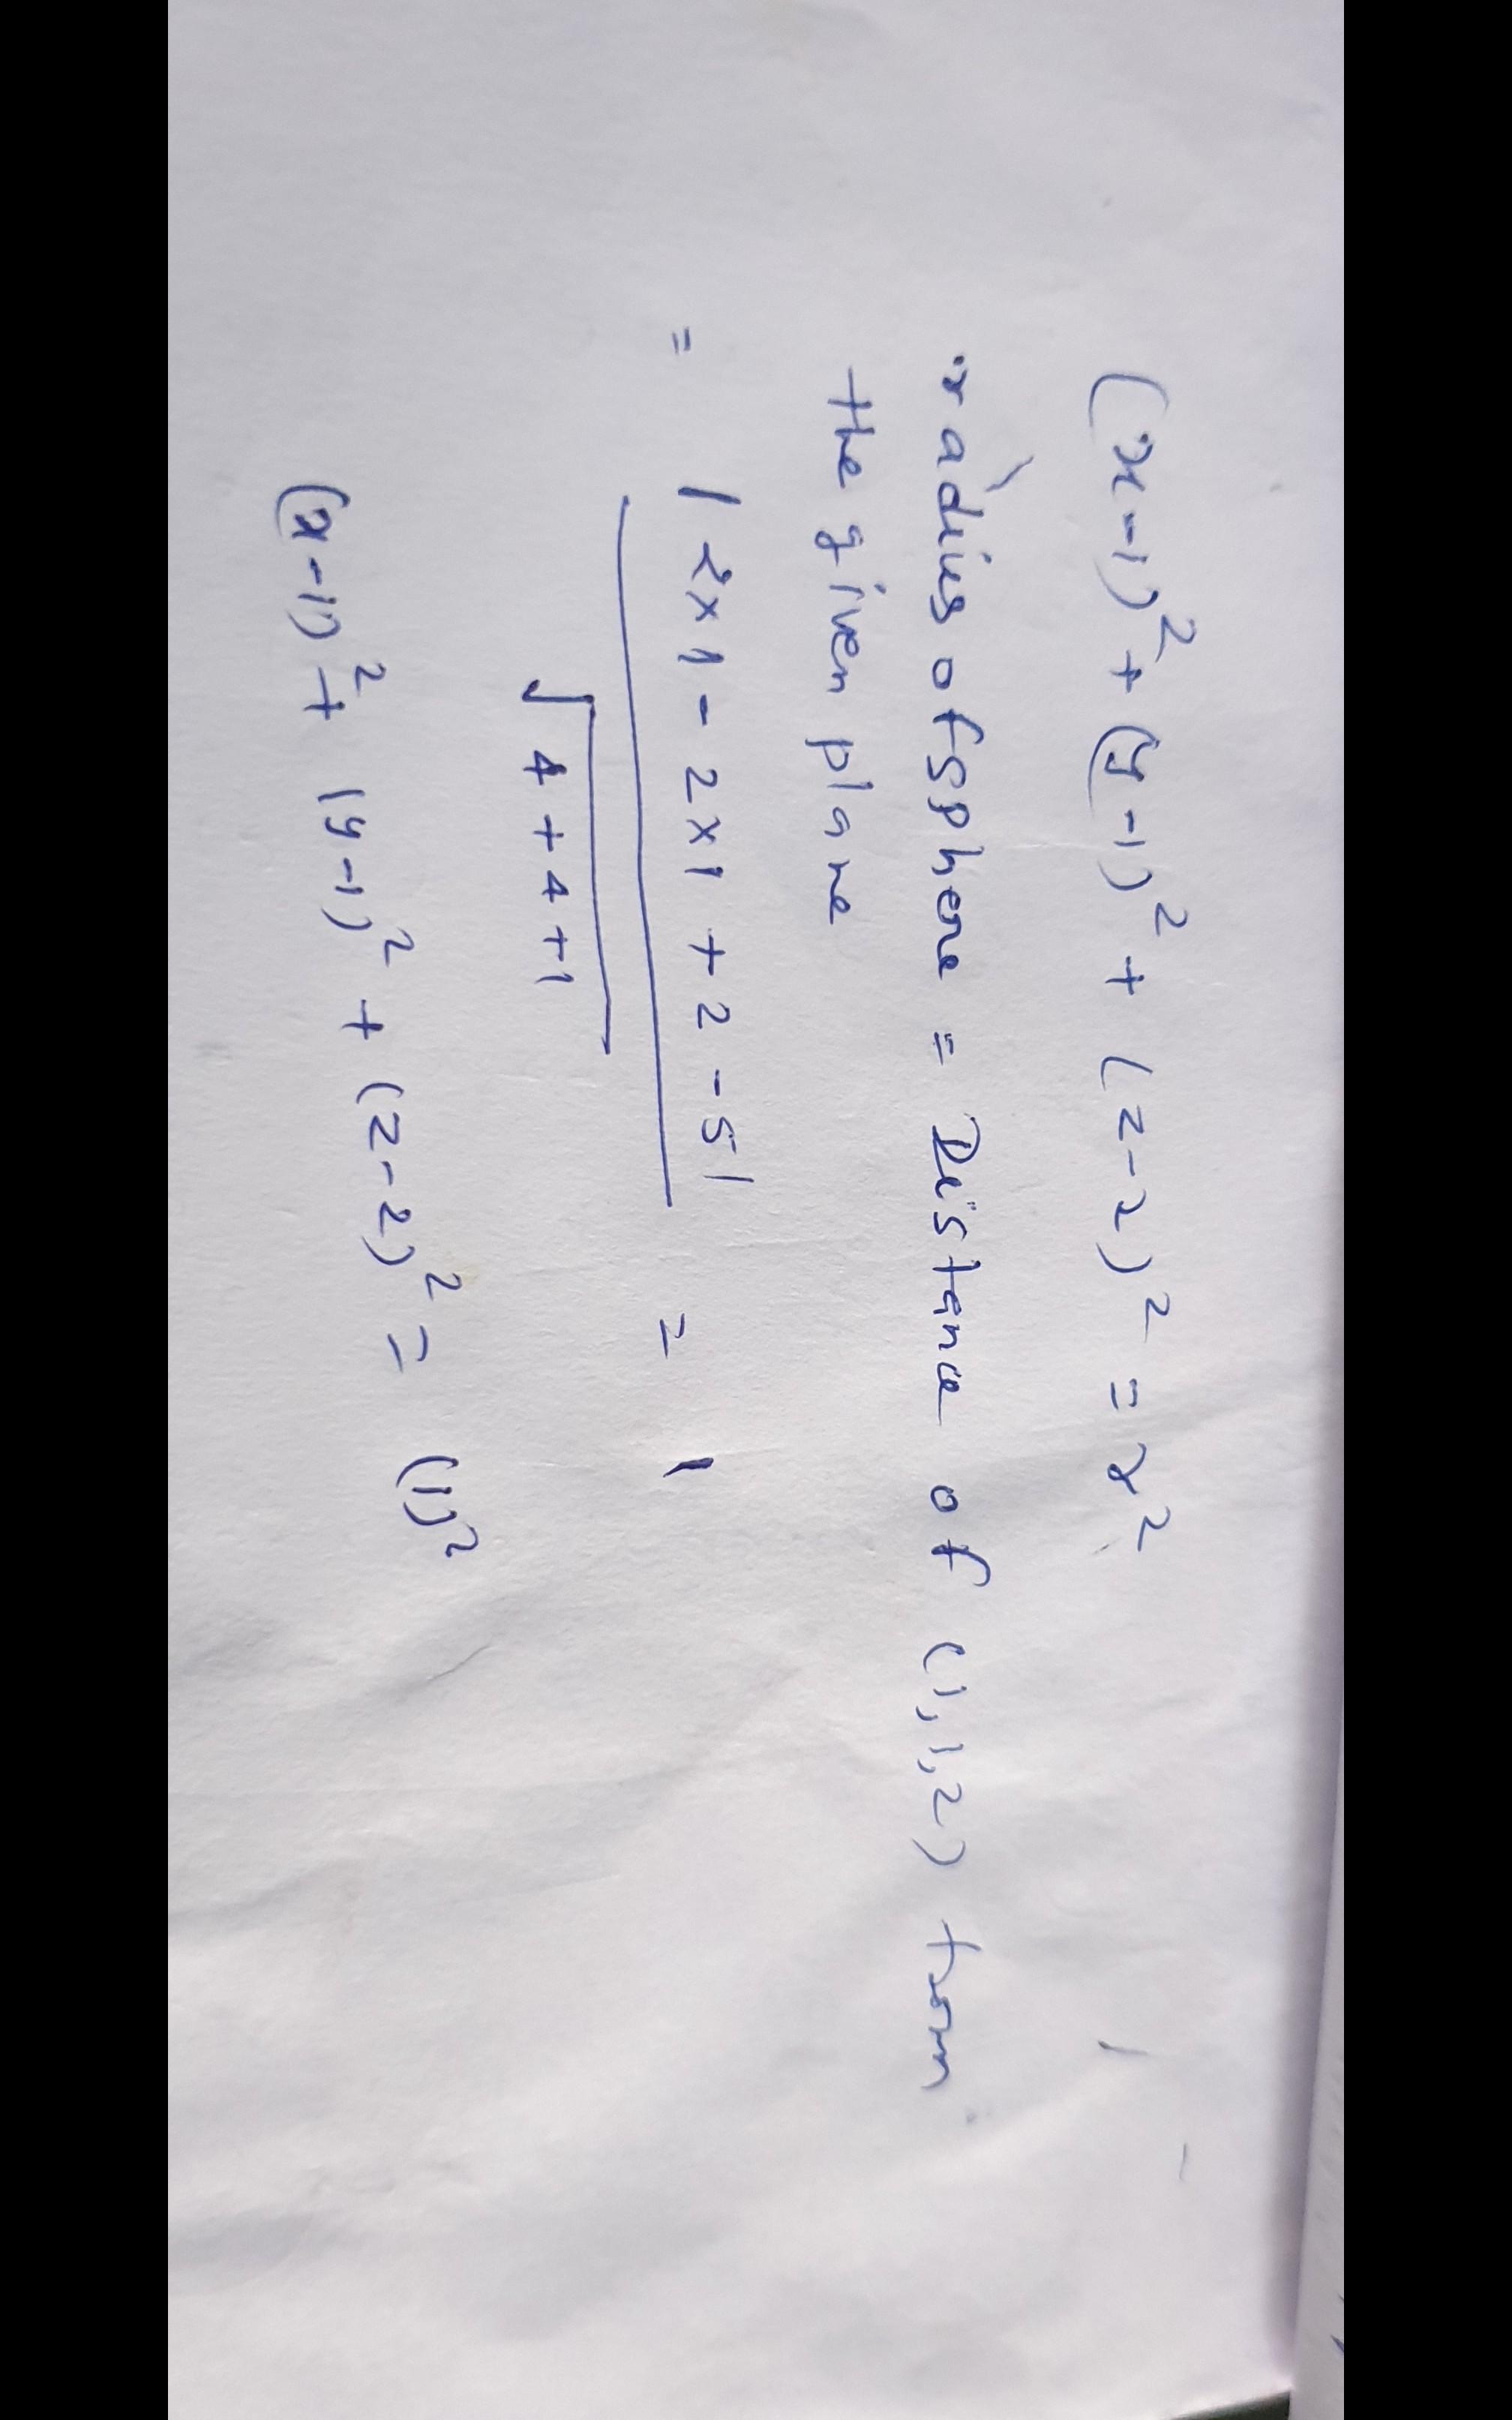 (x-1)² + (y-1)² + (z-2)² = r²
radius of sphere = Distance of (1,1,2) from
the given plane
= |2×1 - 2×1 + 2 - 5| / √4+4+1 = 1
(x-1)² + (y-1)² + (z-2)² = (1)²